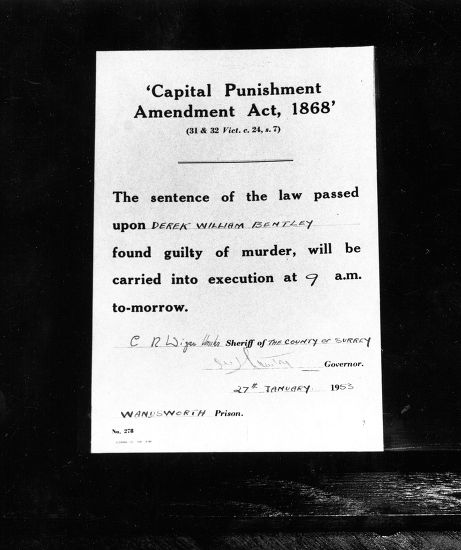 'Capital Punishment
Amendment Act, 1868'
(31 & 32 Vict. c. 24, s. 7)
The sentence of the law passed
upon DEREK WILLIAM BENTLEY
found guilty of murder, will be
carried into execution at 9 a.m.
to-morrow.
C N Sheriff of THE COUNTY OF SURREY
Governor.
27th JANUARY 1953
WANDSWORTH Prison.
No. 278